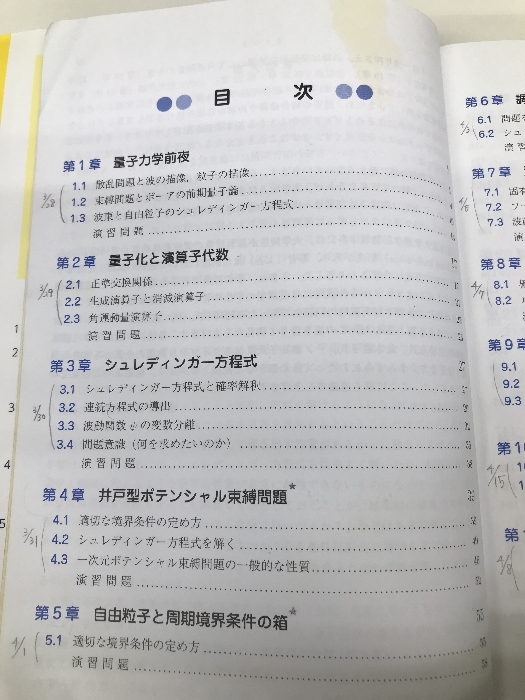 目 次
第1章 量子力学前夜
3/28
1.1 散乱問題と波の描像,粒子の描像
1.2 束縛問題とボーアの前期量子論
1.3 波束と自由粒子のシュレディンガー方程式
演習問題
第2章 量子化と演算子代数
3/29
2.1 正準交換関係
2.2 生成演算子と消滅演算子
2.3 角運動量演算子
演習問題
第3章 シュレディンガー方程式
3/30
3.1 シュレディンガー方程式と確率解釈
3.2 連続方程式の導出
3.3 波動関数φの変数分離
3.4 問題意識(何を求めたいのか)
演習問題
第4章 井戸型ポテンシャル束縛問題*
3/31
4.1 適切な境界条件の定め方
4.2 シュレディンガー方程式を解く
4.3 一次元ポテンシャル束縛問題の一般的な性質
演習問題
第5章 自由粒子と周期境界条件の箱*
4/1
5.1 適切な境界条件の定め方
演習問題
1
2
3
4
5
第6章
6.1 問題
6.2 シュ
演習
第7章
7.1
7.2
7.3
第8章
8.1
8.2
第9章
9.1
9.2
9.3